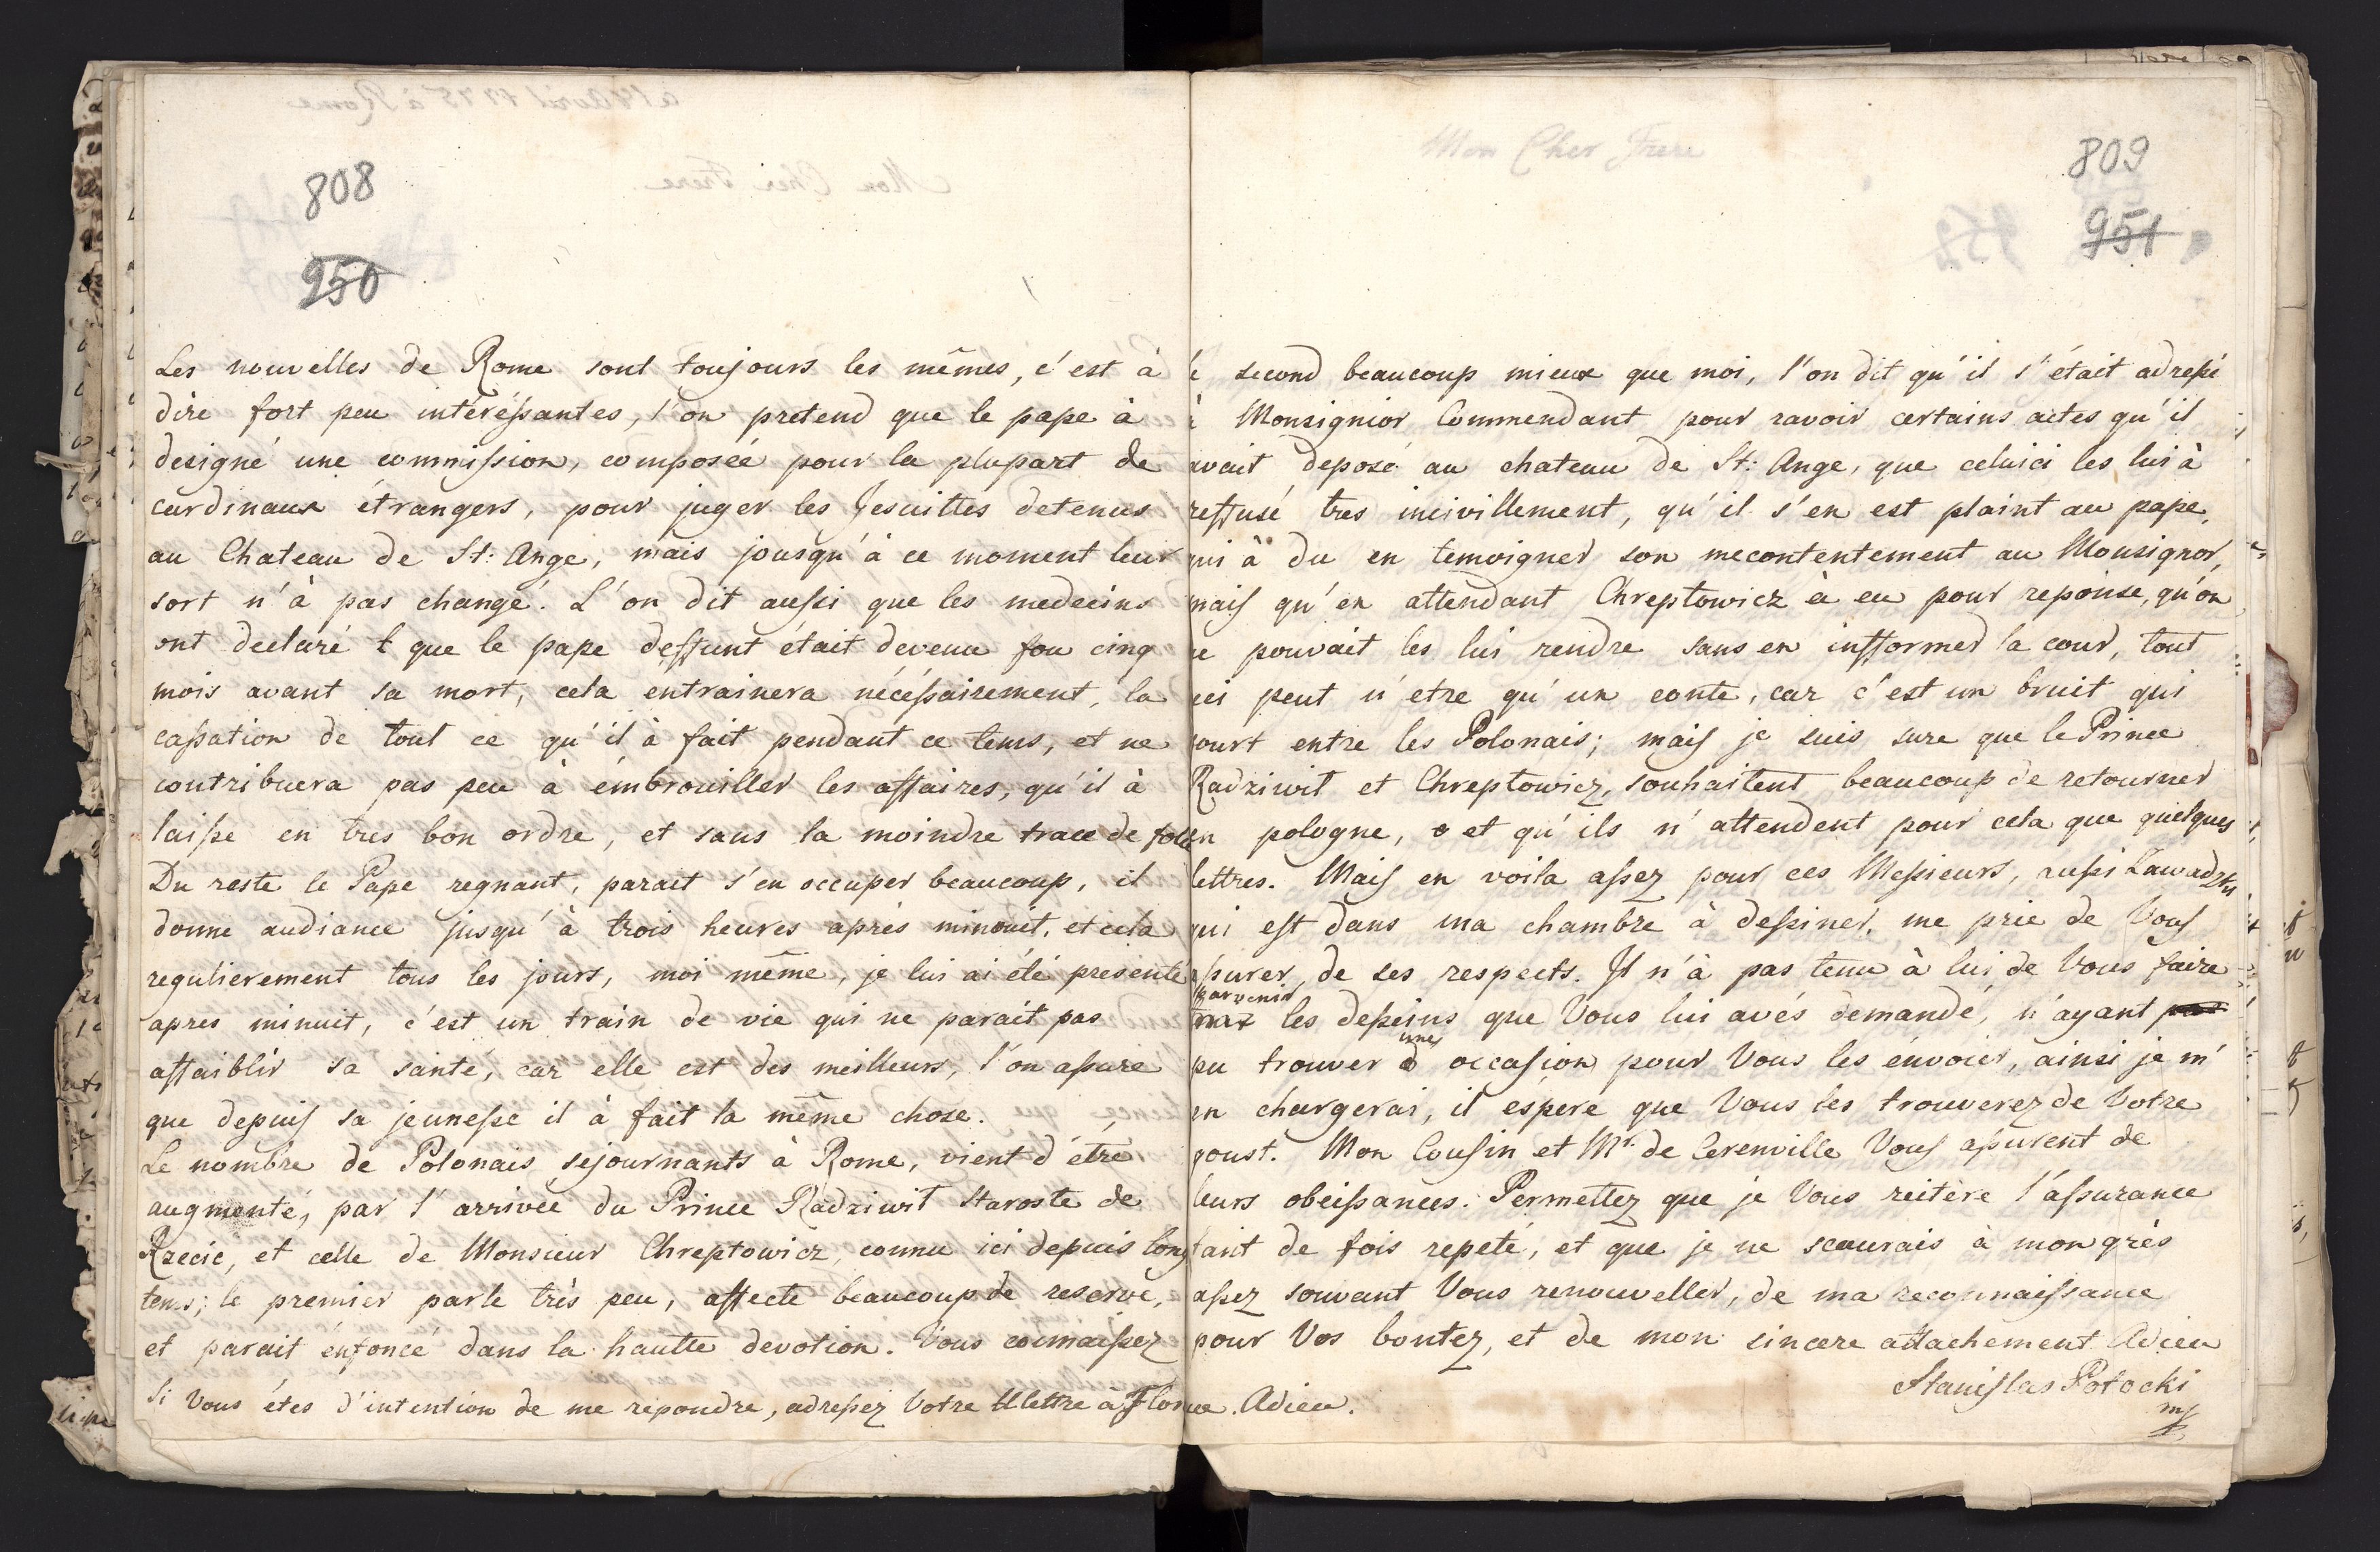 808
950
Les nouvelles de Rome sont toujours les mêmes, c'est à
dire fort peu intéréssantes, l'on pretend que le pape à
designé une commission, composée pour la plupart de
cardinaux étrangers, pour juger les Jesuittes detenus
au Chateau de St: Ange, mais jousqu'à ce moment leur
sort n'à pas changé. L'on dit aussi que les medecins
ont declaré que le pape deffunt était devenu fou cinq
mois avant sa mort, cela entrainera nécéssairement, la
cassation de tout ce qu'il à fait pendant ce tems, et ne
contribuera pas peu à émbrouiller les affaires, qu'il à
laisse en tres bon ordre, et sans la moindre trace de folie
Du reste le Pape regnant, parait s'en occuper beaucoup, il
donne audiance jusqu'à trois heures après minouit, et cela
regulierement tous les jours, moi même, je lui ai été presenté
apres minuit, c'est un train de vie qui ne parait pas
affaiblir sa santé, car elle est des meilleurs, l'on assure
que depuis sa jeunesse il à fait la même chose.
Le nombre de Polonais séjournants à Rome, vient d'étre
augmenté, par l'arrivée du Prince Radziwił Staroste de
Rzecic, et celle de Monsieur Chreptowicz, connu ici depuis long
tems; le premier parle très peu, affecte beaucoup de reserve,
et parait énfoncé dans la hautte devotion. Vous connaissez
Si Vous étes d'intention de me répondre, adressez Votre lettre à Florence. Adieu.
Mon Cher Frere
809
951
le second beaucoup mieux que moi, l'on dit qu'il s'était adressé
à Monsignior Commendant pour ravoir certains actes qu'il
avait deposé au chateau de St: Ange, que celuici les lui à
reffusé tres incivillement, qu'il s'en est plaint au pape,
qui à du en temoigner son mecontentement au Monsignor,
mais qu'en attendant Chreptowicz à eu pour reponse, qu'on
ne pouvait les lui rendre sans en insformer la cour, tout
ceci peut n'etre qu'un conte, car c'est un bruit qui
court entre les Polonais; mais je suis sure que le Prince
Radziwił et Chreptowicz, souhaitent beaucoup de retourner
en pologne, et qu'ils n'attendent pour cela que quelques
lettres. Mais en voila assez pour ces Messieurs, aussi Zawadzki
qui est dans ma chambre à dessiner, me prie de Vous
assurer de ses respects. Il n'à pas tenu à lui de Vous faire
parvenir les desseins que Vous lui avés demandé, n'ayant pas
pu trouver une occasion pour Vous les énvoier, ainsi je m'
en chargerai, il éspere que Vous les trouverez de Votre
goust. Mon Cousin et Mr. de Cerenville Vous assurent de
leurs obeissances. Permettez que je Vous reitère l'assurance
tant de fois repeté, et que je ne scaurais à mon grès
assez souvant Vous renouveller, de ma reconnaissance
pour Vos bontez, et de mon sincere attachement Adieu
Stanislas Potocki